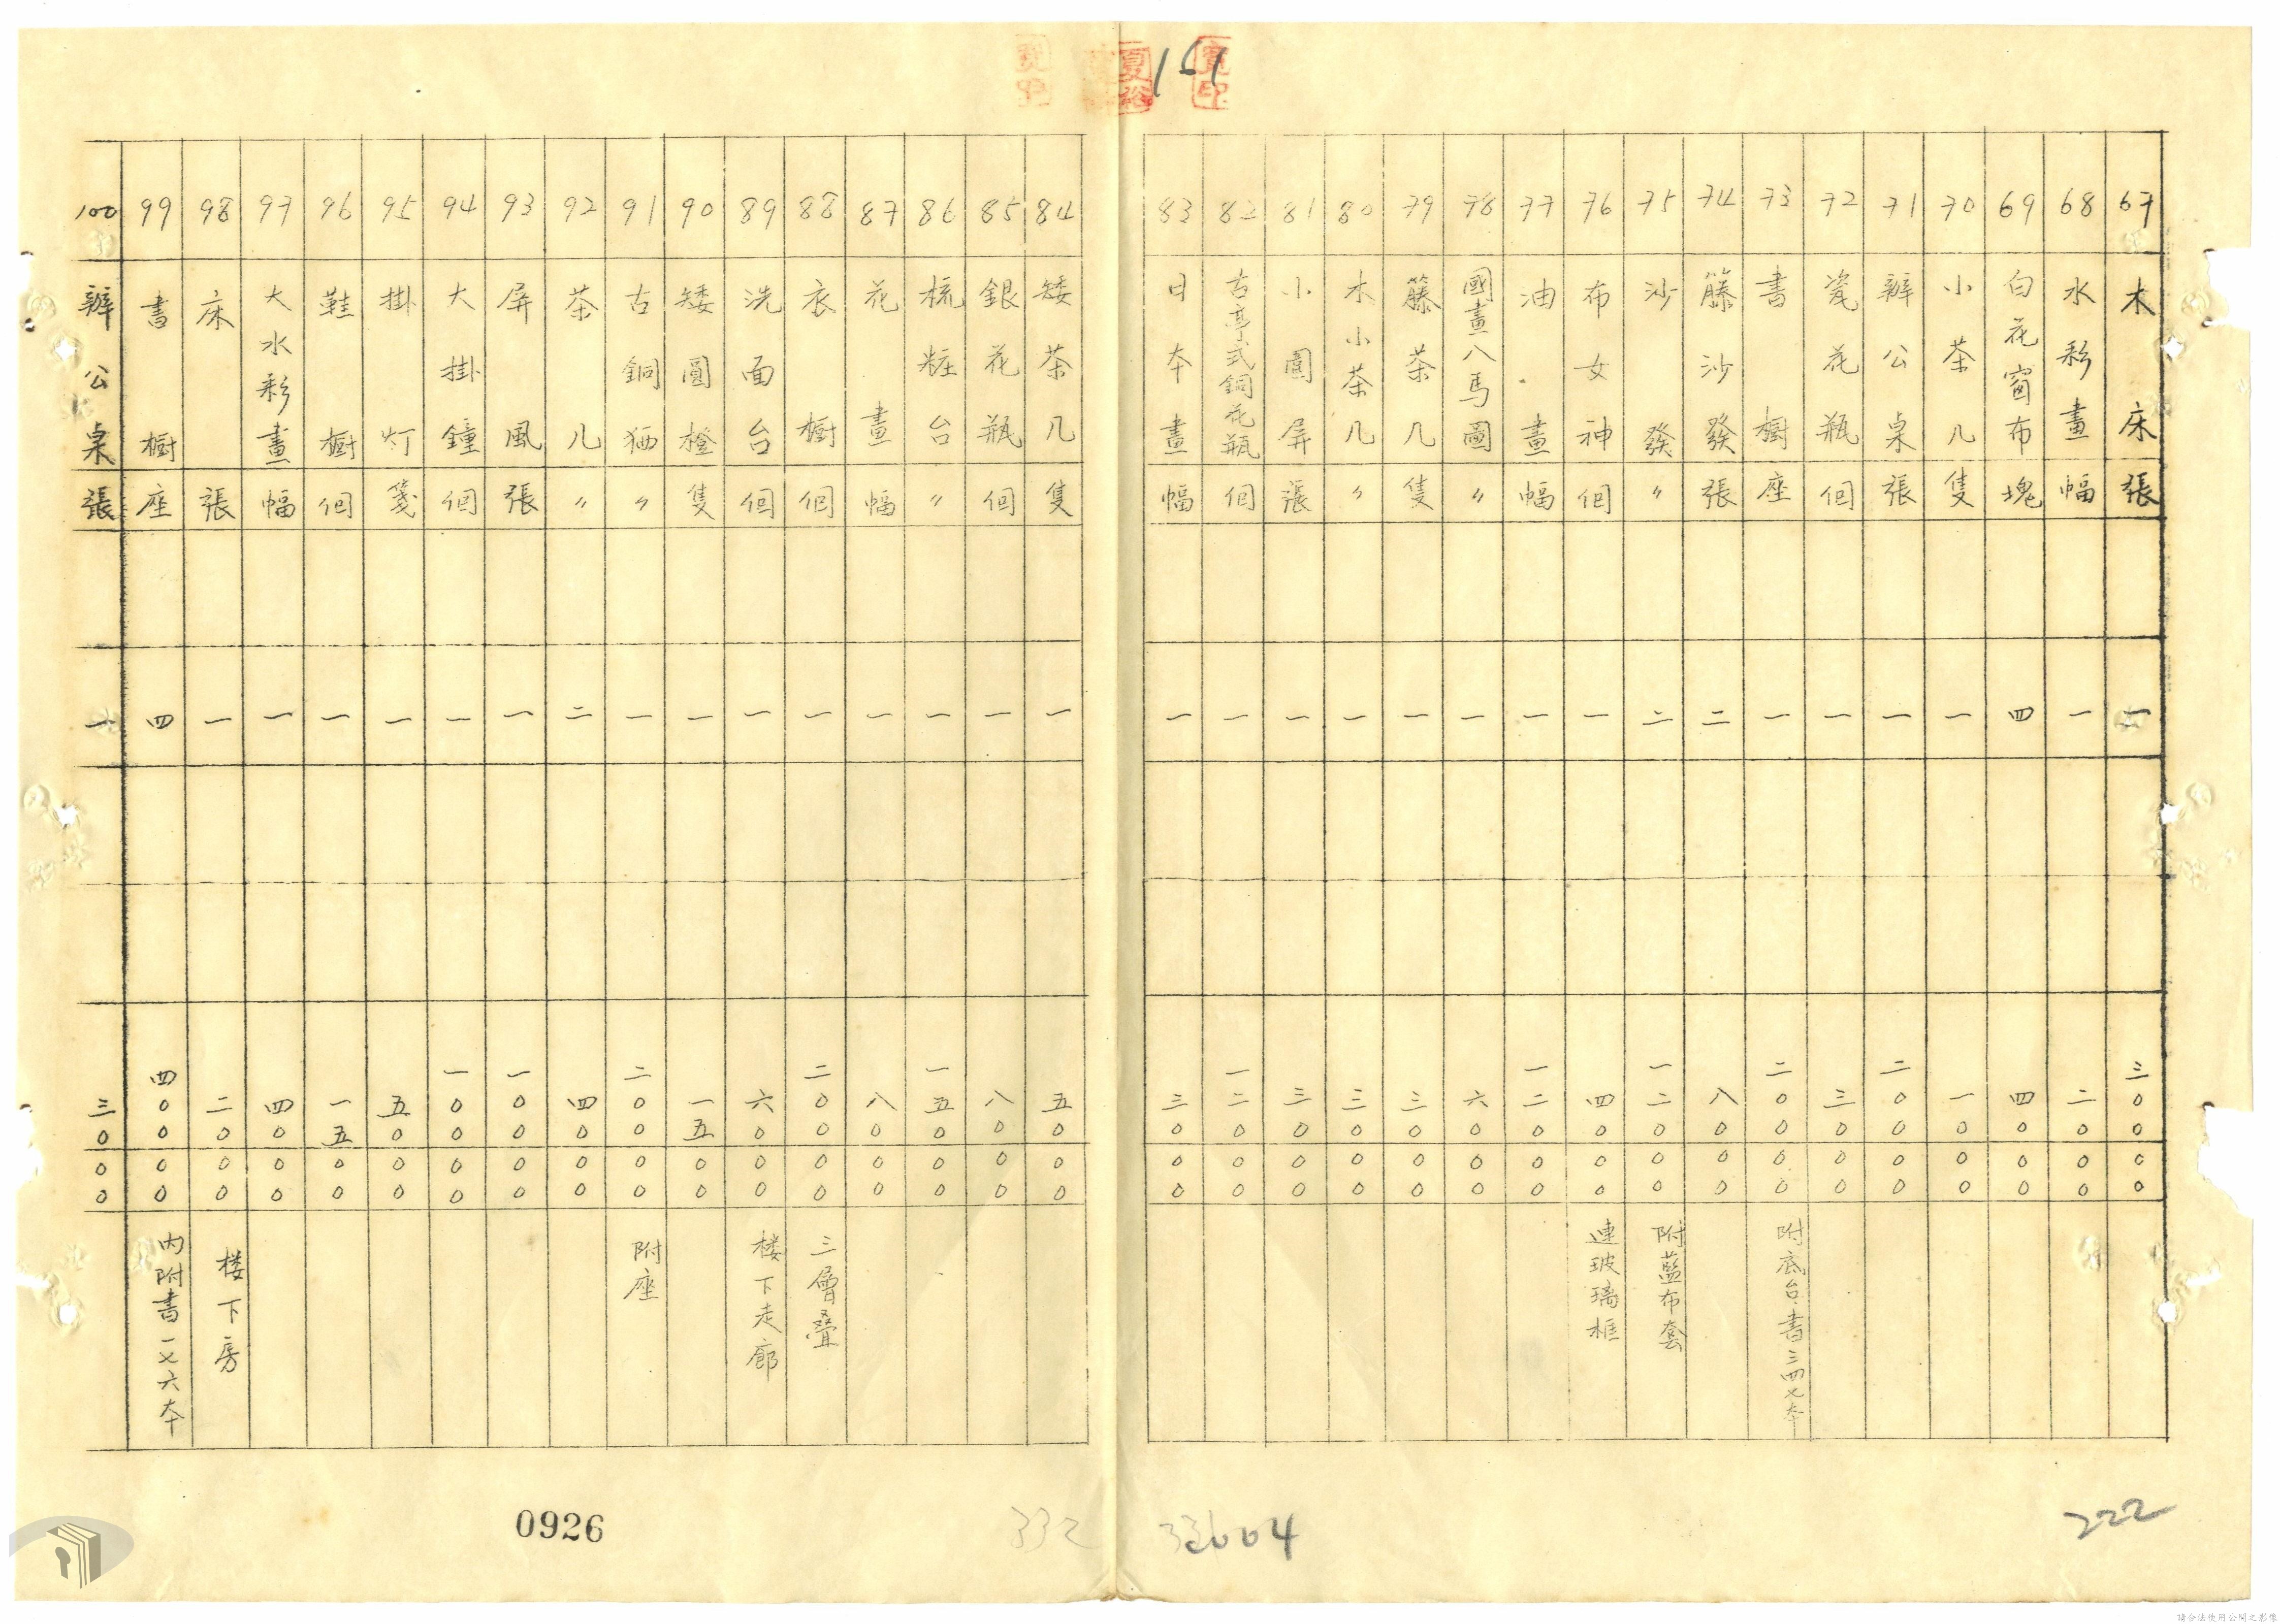 161
夏裕
寶印
67 木床 張 一 三〇〇〇〇
68 水彩畫 幅 一 二〇〇〇
69 白花窗布 塊 四 四〇〇〇
70 小茶几 隻 一 一〇〇〇
71 辦公桌 張 一 二〇〇〇〇
72 瓷花瓶 個 一 三〇〇〇
73 書橱 座 一 二〇〇〇〇 附底台.書三四七本
74 籐沙發 張 二 八〇〇〇
75 沙發 〃 二 一二〇〇〇 附藍布套
76 布女神 個 一 四〇〇〇 連玻璃框
77 油畫 幅 一 一二〇〇〇
78 國畫八馬圖 〃 一 六〇〇〇
79 籐茶几 隻 一 三〇〇〇
80 木小茶几 〃 一 三〇〇〇
81 小圍屏 張 一 三〇〇〇
82 古亭式銅花瓶 個 一 一二〇〇〇
83 日本畫 幅 一 三〇〇〇
84 矮茶几 隻 一 五〇〇〇
85 銀花瓶 個 一 八〇〇〇
86 梳粧台 〃 一 一五〇〇〇
87 花畫 幅 一 八〇〇〇
88 衣橱 個 一 二〇〇〇〇 三層疊
89 洗面台 個 一 六〇〇〇 楼下走廊
90 矮圓橙 隻 一 一五〇〇
91 古銅 〃 一 二〇〇〇〇 附座
92 茶几 〃 二 四〇〇〇
93 屏風 張 一 一〇〇〇〇
94 大掛鐘 個 一 一〇〇〇〇
95 掛灯 笺 一 五〇〇〇
96 鞋橱 個 一 一五〇〇
97 大水彩畫 幅 一 四〇〇〇
98 床 張 一 二〇〇〇 楼下房
99 書橱 座 四 四〇〇〇〇 內附書一七六本
100 辦公桌 張 一 三〇〇〇
0926
332
33604
222
請合法使用公開之影像